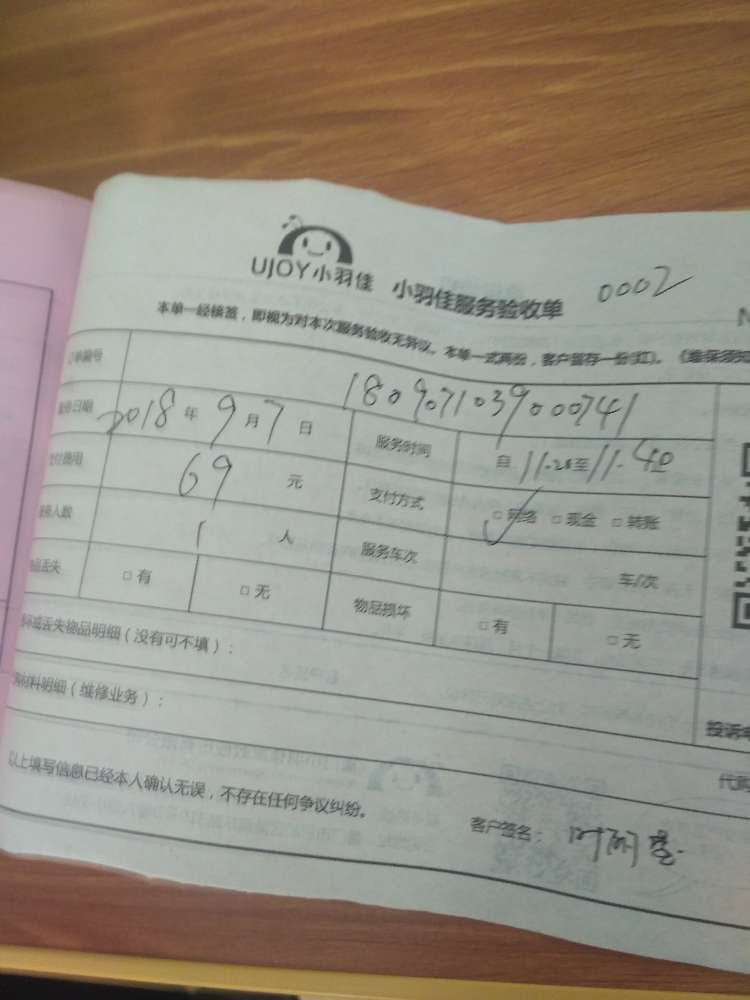 UJOY小羽佳 小羽佳服务验收单 0002
本单一经核签，即视为对本次服务验收无异议。本单一式两份，客户留存一份(红)。《维保须知
订单编号 180907103900741
服务日期 2018年9月7日 服务时间 自11.28至11.40
支付费用 69元 支付方式 □网络 □现金 □转账
服务人数 1人 服务车次 车/次
物品丢失 □有 □无 物品损坏 □有 □无
坏或丢失物品明细（没有可不填）：
材料明细（维修业务）：
投诉电
代购
以上填写信息已经本人确认无误，不存在任何争议纠纷。
客户签名：